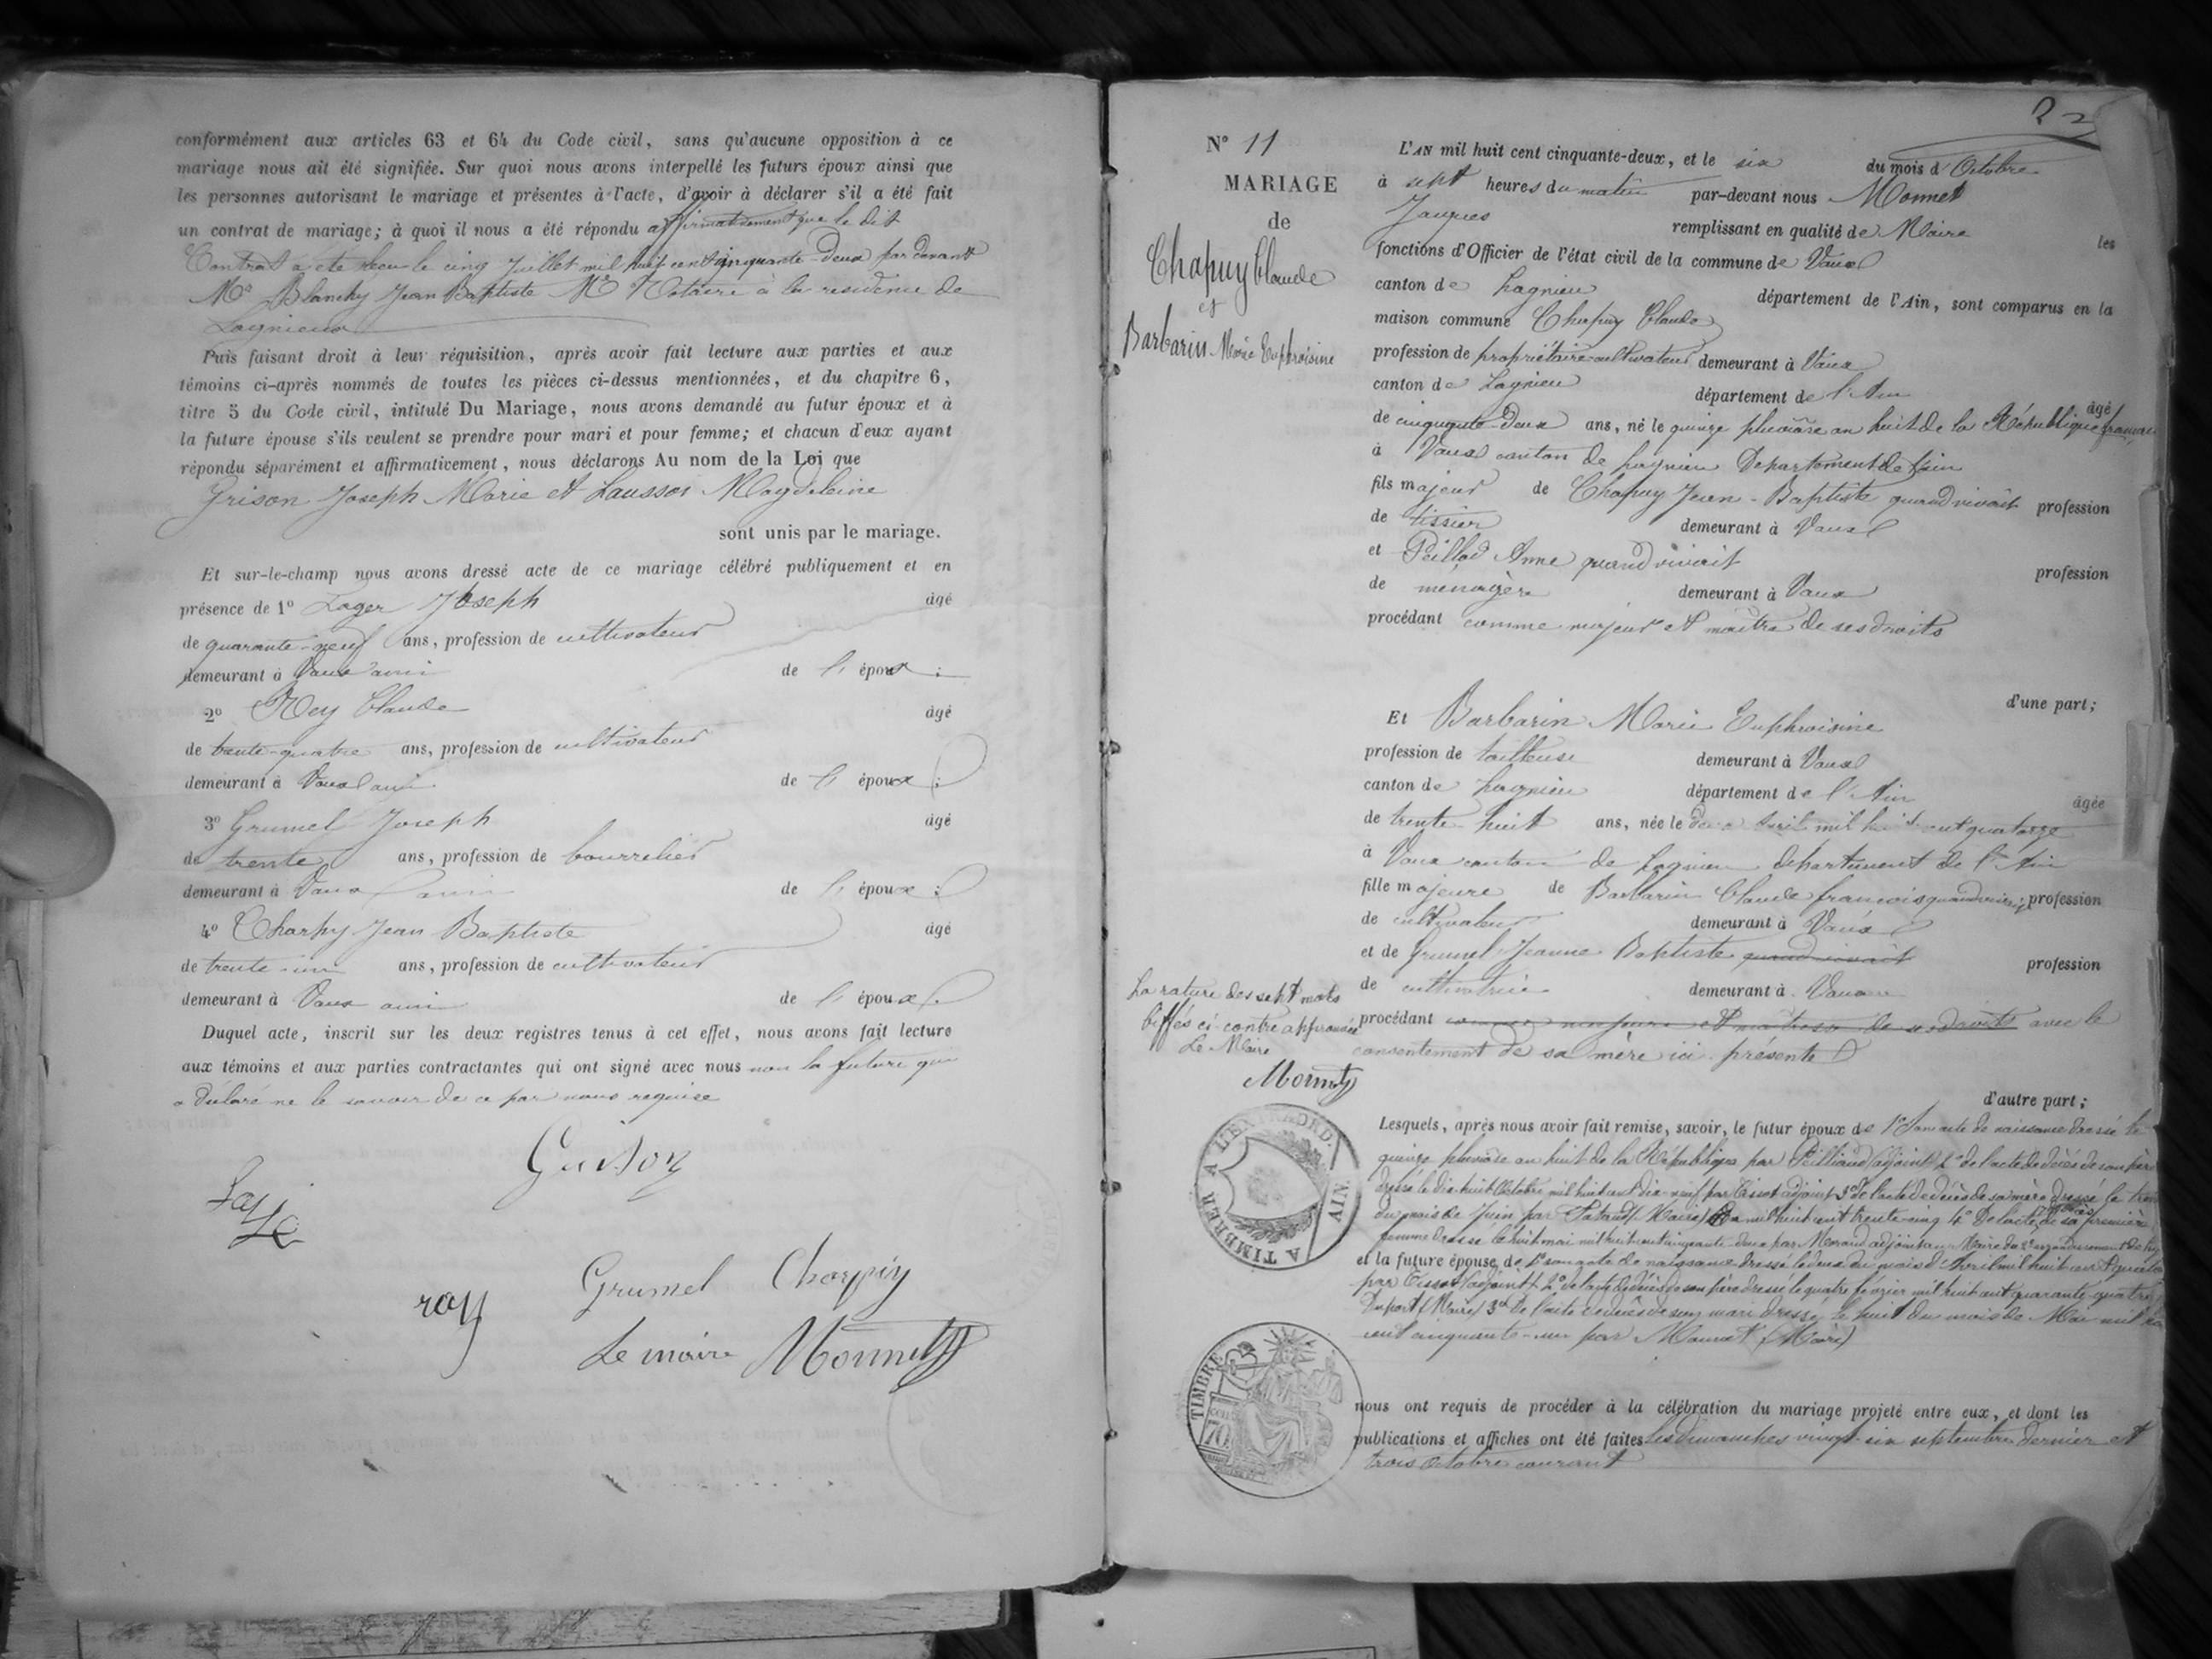 conformément aux articles 63 et 64 du Code civil, sans qu'aucune opposition à ce
mariage nous ait été signifiée. Sur quoi nous avons interpellé les futurs époux ainsi que
les personnes autorisant le mariage et présentes à l'acte, d'avoir à déclarer s'il a été fait
un contrat de mariage; à quoi il nous a été répondu affirmativement que le dit
Contrat a été recu le cinq Juillet mil huit cent cinquante-deux par devant
Me Blanchy Jean Baptiste Me Notaire à la residence de
Lagnieux
Puis faisant droit à leur réquisition, après avoir fait lecture aux parties et aux
témoins ci-après nommés de toutes les pièces ci-dessus mentionnées, et du chapitre 6,
titre 5 du Code civil, intitulé Du Mariage, nous avons demandé au futur époux et à
la future épouse s'ils veulent se prendre pour mari et pour femme; et chacun d'eux ayant
répondu séparément et affirmativement, nous déclarons Au nom de la Loi que
Grison Joseph Marie et Magdeleine
sont unis par le mariage.
Et sur-le-champ nous avons dressé acte de ce mariage célébré publiquement et en
présence de 1º Lager Joseph âgé
de quarante-neuf ans, profession de cultivateur
demeurant à Vaux ami de l'époux ;
2º Rey Claude âgé
de trente-quatre ans, profession de cultivateur
demeurant à Vaux ami de l'époux ;
3º Grumel Joseph âgé
de trente ans, profession de bourrelier
demeurant à Vaux ami de l'époux ;
4º Charpy Jean Baptiste âgé
de trente-un ans, profession de cultivateur
demeurant à Vaux ami de l'époux.
Duquel acte, inscrit sur les deux registres tenus à cet effet, nous avons fait lecture
aux témoins et aux parties contractantes qui ont signé avec nous non la future qui
a déclaré ne le savoir de ce par nous requise
Grison
Grumel Charpiy
roy
Le maire Monnet
22
Nº 11
MARIAGE
de
Chapuy Claude
et
Barbarin Marie Euphroisine
L'AN mil huit cent cinquante-deux, et le six du mois d'Octobre
à sept heures du matin par-devant nous Monnet
Jacques remplissant en qualité de Maire les
fonctions d'Officier de l'état civil de la commune de Vaux
canton de Lagnieu département de l'Ain, sont comparus en la
maison commune Chapuy Claude
profession de propriétaire-cultivateur demeurant à Vaux
canton de Lagnieu département de l'Ain âgé
de cinquante-deux ans, né le quinze pluviôse an huit de la République française
à Vaux canton de Lagnieu Département de l'ain
fils majeur de Chapuy Jean-Baptiste quand vivait profession
de tissier demeurant à Vaux
et Peillod Anne quand vivait profession
de ménagère demeurant à Vaux
procédant comme majeur et maître de ses droits
d'une part;
Et Barbarin Marie Euphroisine
profession de tailleuse demeurant à Vaux
canton de Lagnieu département de l'Ain âgée
de trente-huit ans, née le deux avril mil huit cent quatorze
à Vaux canton de Lagnieu département de l'Ain
fille majeure de Barbarin Claude francois quand vivait profession
de cultivateur demeurant à Vaux
et de Grumel Jeanne Baptiste quand vivait profession
de cultivatrice demeurant à Vaux
procédant comme majeure et maitresse de ses droits avec le
consentement de sa mère ici présente
La rature des sept mots
biffés ci-contre approuvée
Le Maire
Monnet
d'autre part;
Lesquels, après nous avoir fait remise, savoir, le futur époux de 1º Son acte de naissance dressé le
quinze pluviose an huit de la République par Peilliaud adjoint 2º de l'acte de décès de son père
dressé le dix-huit Octobre mil huit cent dix-neuf par Tissot adjoint 3º de l'acte de décès de sa mère dressé le
du mois de Juin par (Maire) mil huit cent trente-cinq 4º De l'acte de décès de sa première
femme dressé le huit mai mil huit cent cinquante-deux par Morand adjoint au Maire du 2e arrondissement de
et la future épouse de 1º son acte de naissance dressé le deux du mois d'Avril mil huit cent quatorze
par Tissot (adjoint) 2º de l'acte de décès de son père dressé le quatre février mil huit cent quarante-quatre
Duport (Maire) 3º de l'acte de décès de son mari dressé le huit du mois de Mai mil
cent cinquante-un par Monnet (Maire)
nous ont requis de procéder à la célébration du mariage projeté entre eux, et dont les
publications et affiches ont été faites les dimanches vingt-six septembre dernier et
trois Octobre courant
A TIMBRER A L'EXTRAORD.
AIN
TIMBRE
70